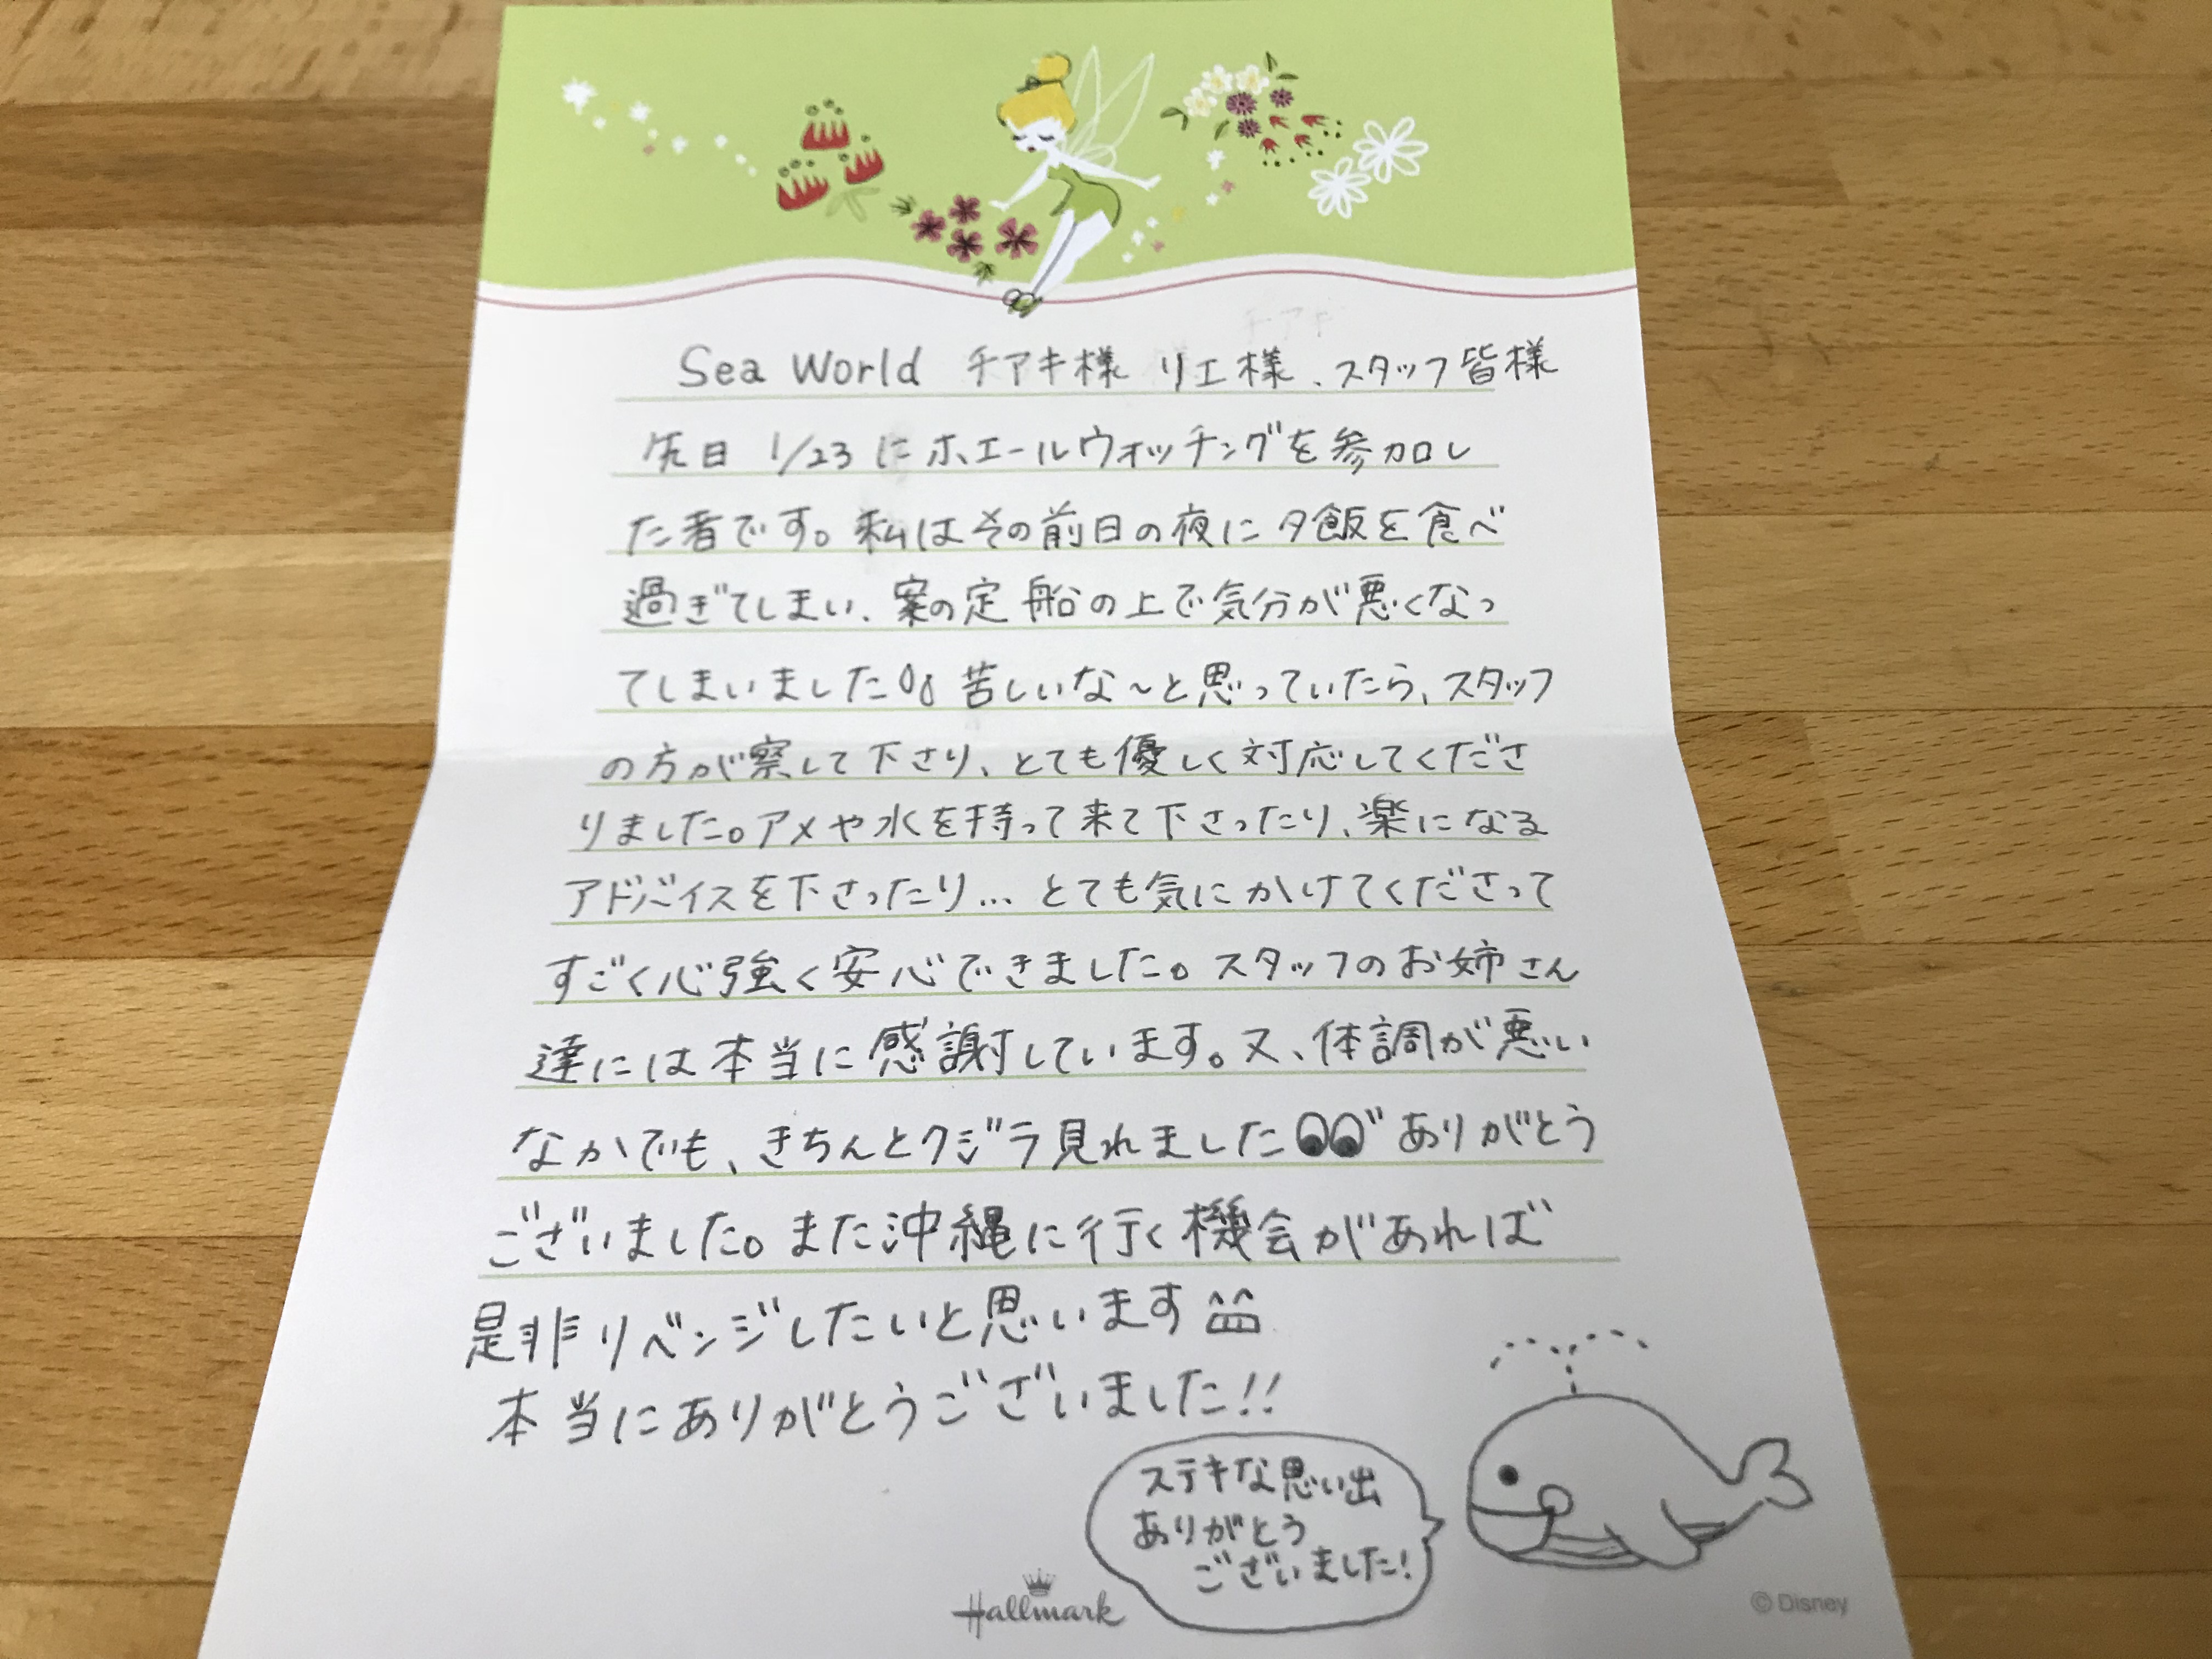 Sea World チアキ様 リエ様、スタッフ皆様
先日 1/23 にホエールウォッチングを参加し
た者です。私はその前日の夜に夕飯を食べ
過ぎてしまい、案の定 船の上で気分が悪くなっ
てしまいました 苦しいな〜と思っていたら、スタッフ
の方が察して下さり、とても優しく対応してくださ
りました。アメや水を持って来て下さったり、楽になる
アドバイスを下さったり... とても気にかけてくださって
すごく心強く安心できました。スタッフのお姉さん
達には本当に感謝しています。又、体調が悪い
なかでも、きちんとクジラ見れました ありがとう
ございました。また沖縄に行く機会があれば
是非リベンジしたいと思います
本当にありがとうございました!!
ステキな思い出
ありがとう
ございました!
Hallmark
© Disney